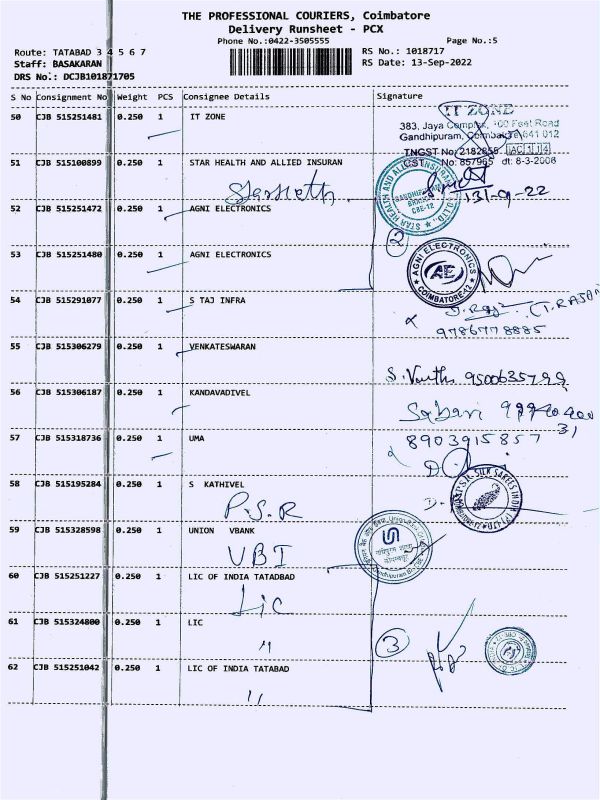 THE PROFESSIONAL COURIERS, Coimbatore
Delivery Runsheet - PCX
Phone No.:0422-3505555 Page No.:5
Route: TATABAD 3 4 5 6 7 RS No.: 1018717
Staff: BASAKARAN RS Date: 13-Sep-2022
DRS No.: DCJB101871705
S No Consignment No Weight PCS Consignee Details Signature
50 CJB 515251481 0.250 1 IT ZONE
IT ZONE
383, Jaya Complex, 100 Feet Road
Gandhipuram, Coimbatore 641 012
TNGST No: 2182855
CST No: 857965 dt: 8-3-2006
51 CJB 515100899 0.250 1 STAR HEALTH AND ALLIED INSURAN
13-9-22
52 CJB 515251472 0.250 1 AGNI ELECTRONICS
2
53 CJB 515251480 0.250 1 AGNI ELECTRONICS
AGNI ELECTRONICS
AE
COIMBATORE-12
54 CJB 515291077 0.250 1 S TAJ INFRA
9786778885
55 CJB 515306279 0.250 1 VENKATESWARAN
56 CJB 515306187 0.250 1 KANDAVADIVEL
Sabari
57 CJB 515318736 0.250 1 UMA
8903915857
58 CJB 515195284 0.250 1 S KATHIVEL
P.S.R
59 CJB 515328598 0.250 1 UNION VBANK
UBI
60 CJB 515251227 0.250 1 LIC OF INDIA TATADBAD
Lic
61 CJB 515324800 0.250 1 LIC
"
3
62 CJB 515251042 0.250 1 LIC OF INDIA TATABAD
"